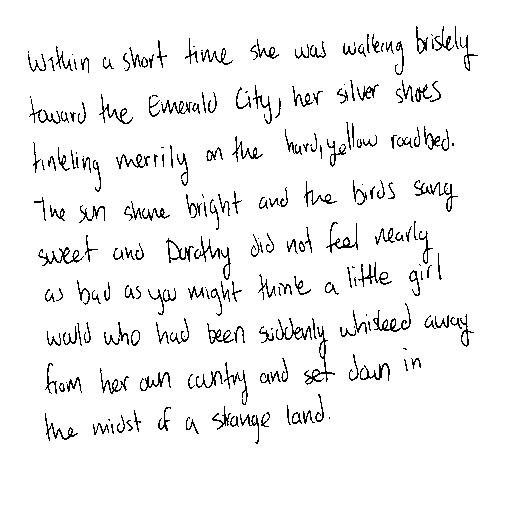 Within a short time she was walking briskly
toward the Emerald City, her silver shoes
tinkling merrily on the hard, yellow roadbed.
The sun shone bright and the birds sang
sweet and Dorothy did not feel nearly
as bad as you might think a little girl
would who had been suddenly whisked away
from her own country and set down in
the midst of a strange land.